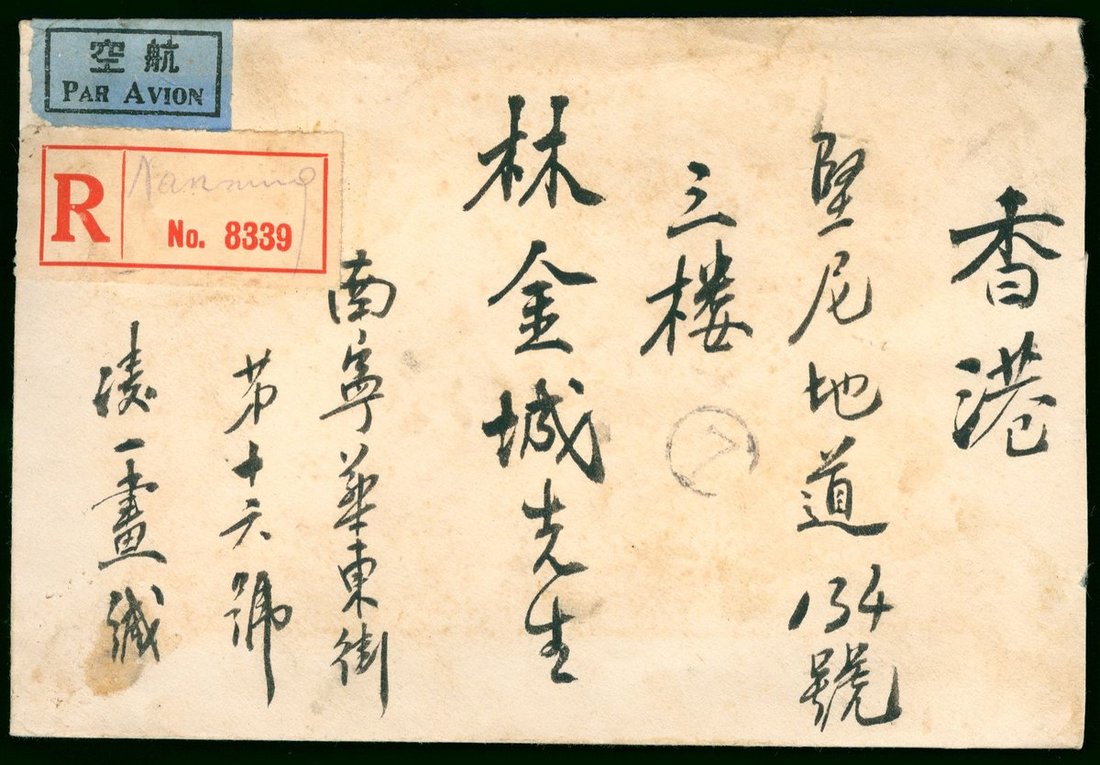 空航
PAR AVION
R
Nanning
No. 8339
香港
堅尼地道134號
三楼
林金城先生
南寧華東街
第十六號
凌一畫緘